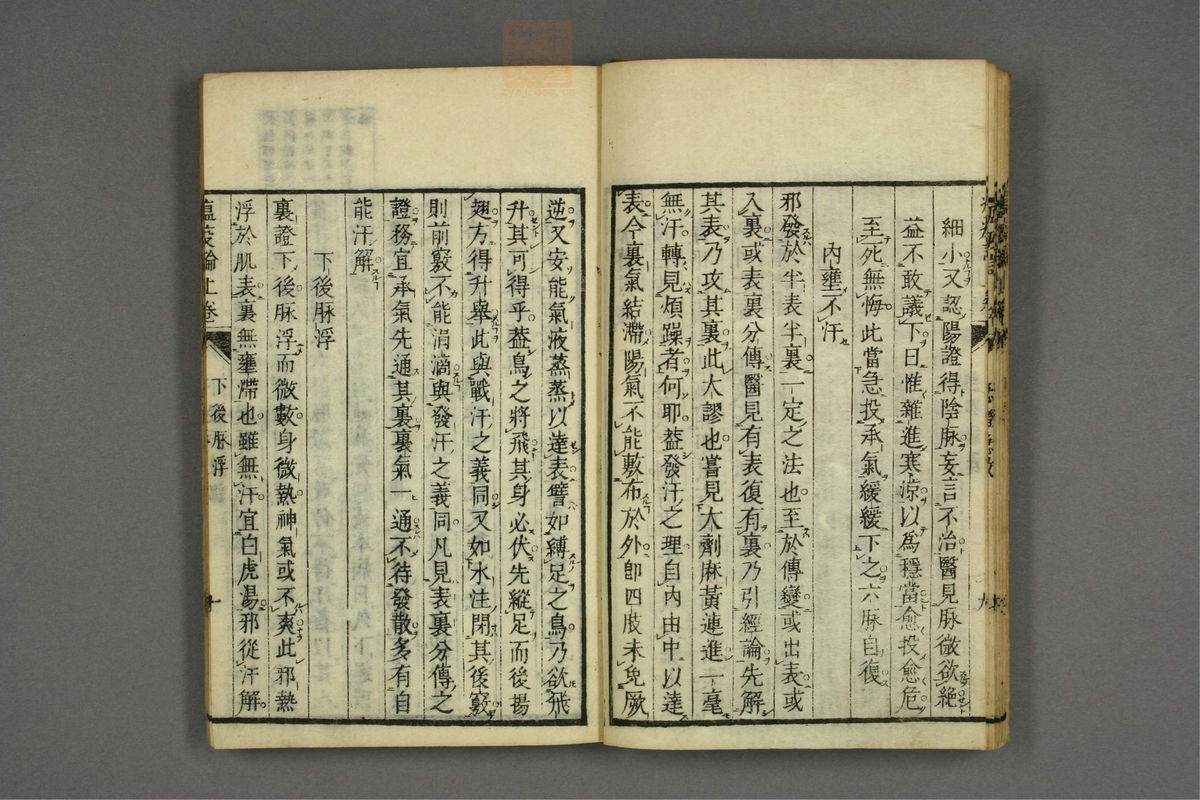 細小又認陽證得陰脉妄言不治醫見脉微欲絕
益不敢議下日惟雜進寒涼以為穩當愈投愈危
至死無悔此當急投承氣緩緩下之六脉自復
內壅不汗
邪發於半表半裏一定之法也至於傳變或出表或
入裏或表裏分傳醫見有表復有裏乃引經論先解
其表乃攻其裏此大謬也嘗見大劑麻黃連進一毫
無汗轉見煩躁者何耶葢發汗之理自內由中以達
表今裏氣結滯陽氣不能敷布於外即四肢未免厥
逆又安能氣液蒸蒸以達表譬如縛足之鳥乃欲飛
升其可得乎葢鳥之將飛其身必伏先縱足而後揚
翅方得升舉此與戰汗之義同又如水注閉其後竅
則前竅不能涓滴與發汗之義同凡見表裏分傳之
證務宜承氣先通其裏裏氣一通不待發散多有自
能汗解
下後脉浮
裏證下後脉浮而微數身微熱神氣或不爽此邪熱
浮於肌表裏無壅滯也雖無汗宜白虎湯邪從汗解
瘟疫論上卷
下後脉浮